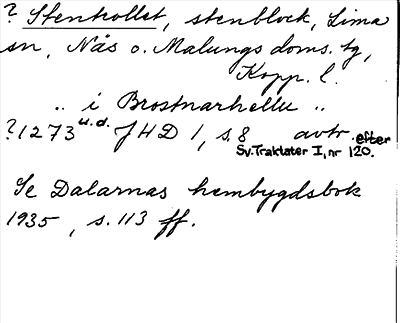 ? Stenkollet, stenblock, Lima
sn, Nås o. Malungs doms. tg,
Kopp. l.
.. i Brostnarhellu ..
?1273 u.d. JHD 1, s. 8 avtr. efter
Sv. Traktater I, nr 120.
Se Dalarnas hembygdsbok
1935, s. 113 ff.